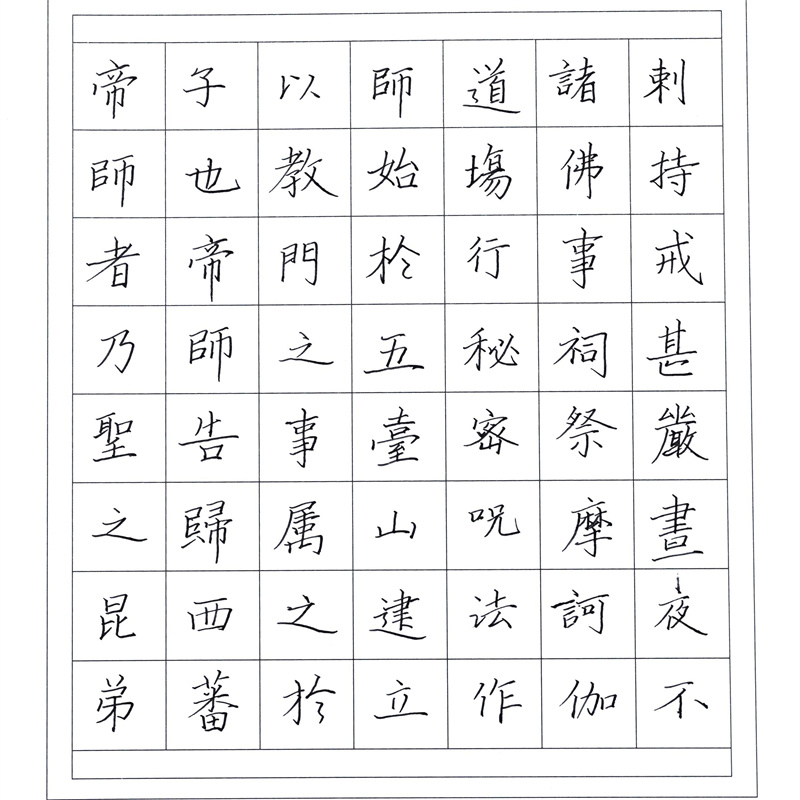 帝師者乃聖之昆弟
子也帝師告歸西蕃
以教門之事属之於
師始於五臺山建立
道場行秘密呪法作
諸佛事祠祭摩訶伽
剌持戒甚嚴晝夜不